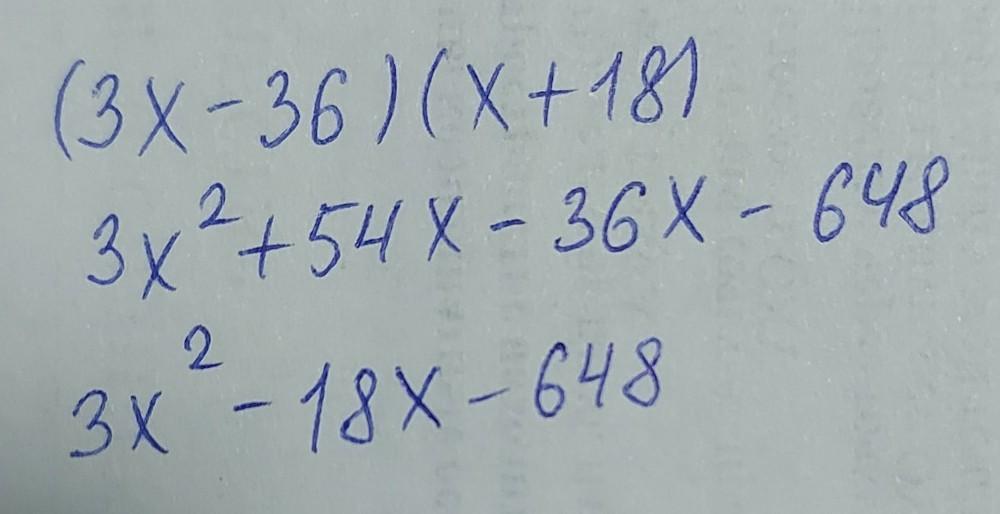 (3x-36)(x+18)
3x²+54x-36x-648
3x²-18x-648